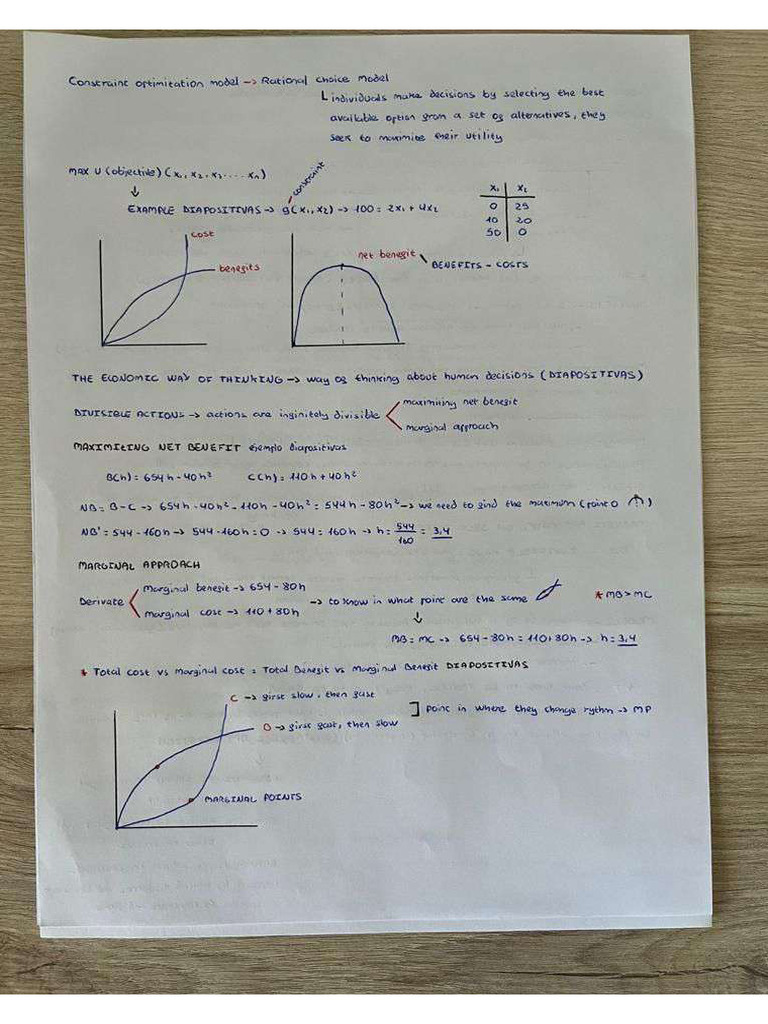 Constraint optimitation model → Rational choice model
individuals make decisions by selecting the best
available option from a set of alternatives, they
seek to maximite their utility
MAX U (objective) (x₁, x₂, x₃.... xₙ)
constraint
EXAMPLE DIAPOSITIVAS → g(x₁, x₂) → 100 = 2x₁ + 4x₂
x₁ x₂
0 25
10 20
50 0
cost
benefits
net benefit
BENEFITS - COSTS
THE ECONOMIC WAY OF THINKING → way of thinking about human decisions (DIAPOSITIVAS)
DIVISIBLE ACTIONS → actions are infinitely divisible
maximiting net benefit
marginal approach
MAXIMITING NET BENEFIT ejemplo diapositivas
B(h) = 654h - 40h² C(h) = 110h + 40h²
NB = B - C → 654h - 40h² - 110h - 40h² = 544h - 80h² → we need to find the maximum (point 0 )
NB' = 544 - 160h → 544 - 160h = 0 → 544 = 160h → h = 544/160 = 3,4
MARGINAL APPROACH
Derivate
marginal benefit → 654 - 80h
marginal cost → 110 + 80h
→ to know in what point are the same
* MB > MC
MB = MC → 654 - 80h = 110 + 80h → h = 3,4
* Total cost vs Marginal cost = Total Benefit vs Marginal Benefit DIAPOSITIVAS
C → first slow, then fast
B → first fast, then slow
] Point in where they change rythm → MP
MARGINAL POINTS